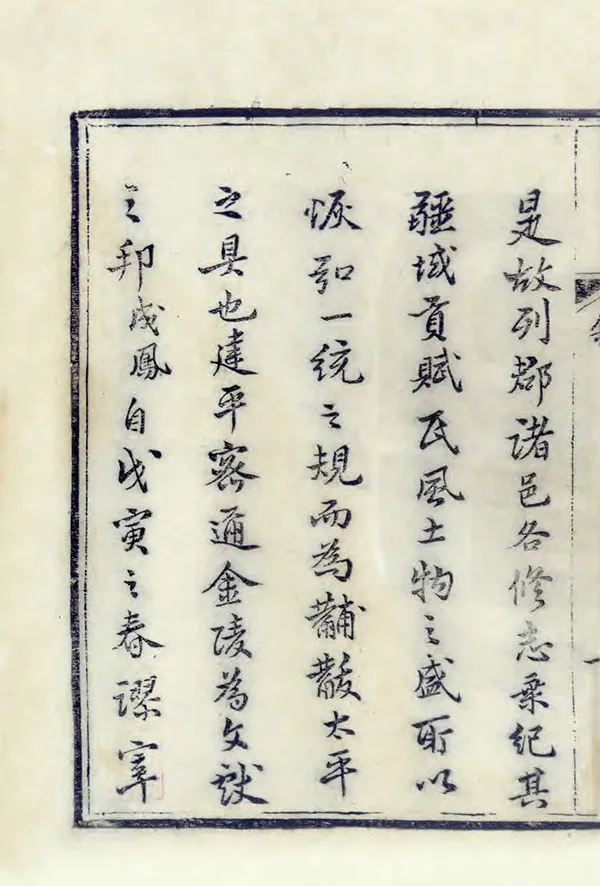 是故列郡諸邑各修志乘紀其
疆域貢賦民風土物之盛所以
恢弘一統之規而為黼黻太平
之具也建平密通金陵為文獻
之邦成鳳自戊寅之春謬宰